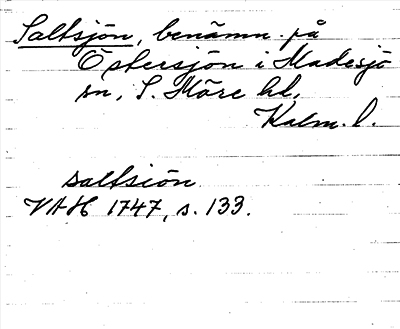 Saltsjön, benämn. på
Östersjön i Madesjö
sn, S. Möre hd,
Kalm. l.
saltsiön
VAH 1747, s. 133.